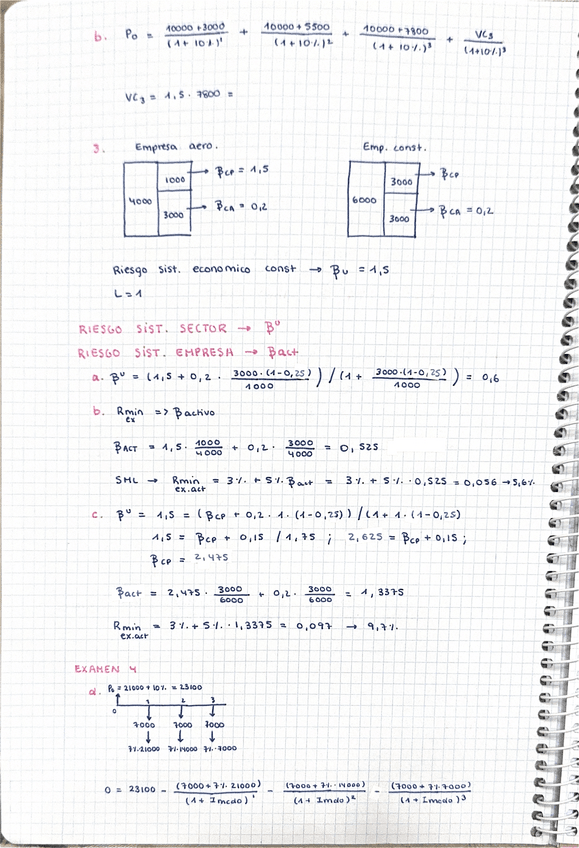 b. P₀ = (10000+3000)/(1+10%)¹ + (10000+5500)/(1+10%)² + (10000+7800)/(1+10%)³ + VC₃/(1+10%)³
VC₃ = 1,5 · 7800 =
3. Empresa aero. Emp. const.
4000 1000 → βCP = 1,5 6000 3000 → βCP
3000 → βCA = 0,2 3000 → βCA = 0,2
Riesgo sist. economico const → βU = 1,5
L = 1
RIESGO SIST. SECTOR → βᵁ
RIESGO SIST. EMPRESA → βact
a. βᵁ = (1,5 + 0,2 · 3000·(1-0,25)/1000) / (1 + 3000·(1-0,25)/1000) = 0,6
b. Rmin ex => βactivo
βACT = 1,5 · 1000/4000 + 0,2 · 3000/4000 = 0,525
SML → Rmin ex.act = 3% + 5% βact = 3% + 5% · 0,525 = 0,056 → 5,6%
c. βᵁ = 1,5 = (βCP + 0,2 · 1 · (1-0,25)) / (1 + 1 · (1-0,25)
1,5 = βCP + 0,15 / 1,75 ; 2,625 = βCP + 0,15 ;
βCP = 2,475
βact = 2,475 · 3000/6000 + 0,2 · 3000/6000 = 1,3375
Rmin ex.act = 3% + 5% · 1,3375 = 0,097 → 9,7%
EXAMEN 4
d. P₀ = 21000 + 10% = 23100
0 1 2 3
7000 7000 7000
7%·21000 7%·14000 7%·7000
0 = 23100 - (7000+7%·21000)/(1+Imcdo)¹ - (7000+7%·14000)/(1+Imdo)² - (7000+7%·7000)/(1+Imcdo)³